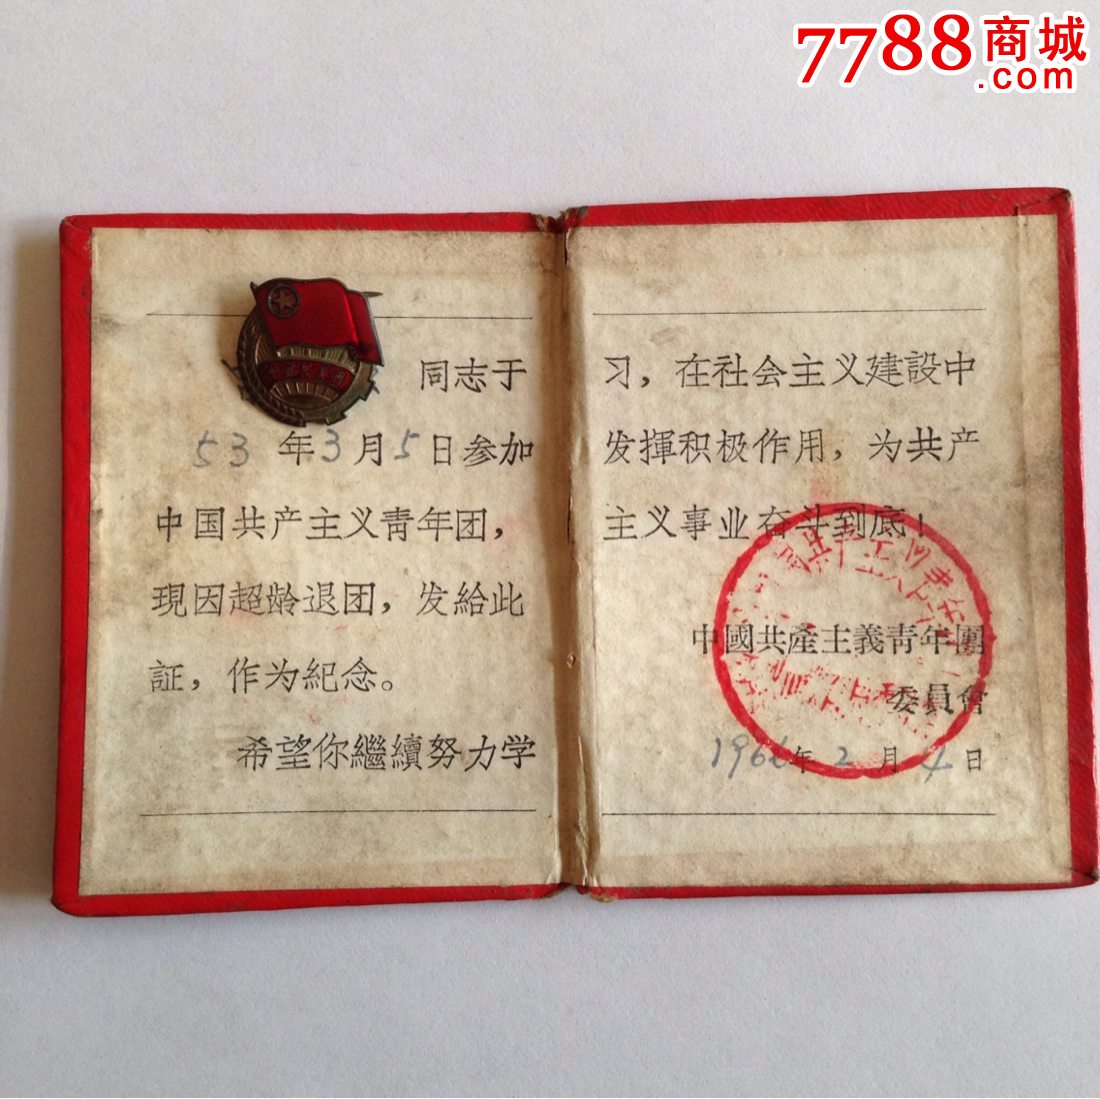 7788商城
.com
同志于
53年3月5日参加
中国共产主义青年团，
現因超龄退团，发給此
証，作为紀念。
希望你繼續努力学
习，在社会主义建設中
发揮积极作用，为共产
主义事业奋斗到底！
中國共產主義青年團
委員會
1966年2月4日